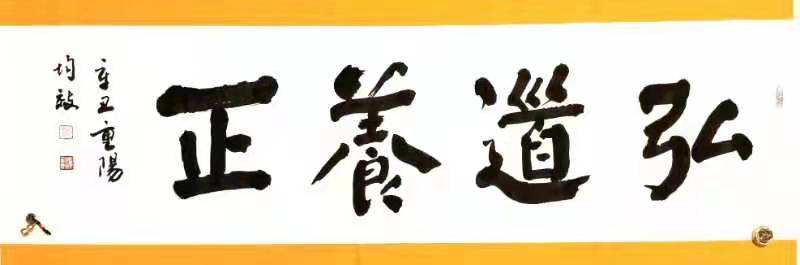 弘道養正
辛丑重陽
均敏